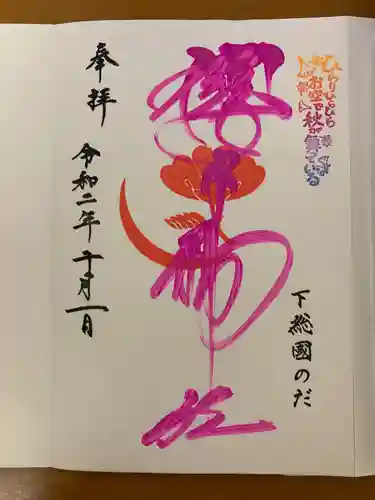 ひらりひらひら
お空で秋が
舞っている
下総國のだ
櫻木神社
奉拝
令和二年十月一日